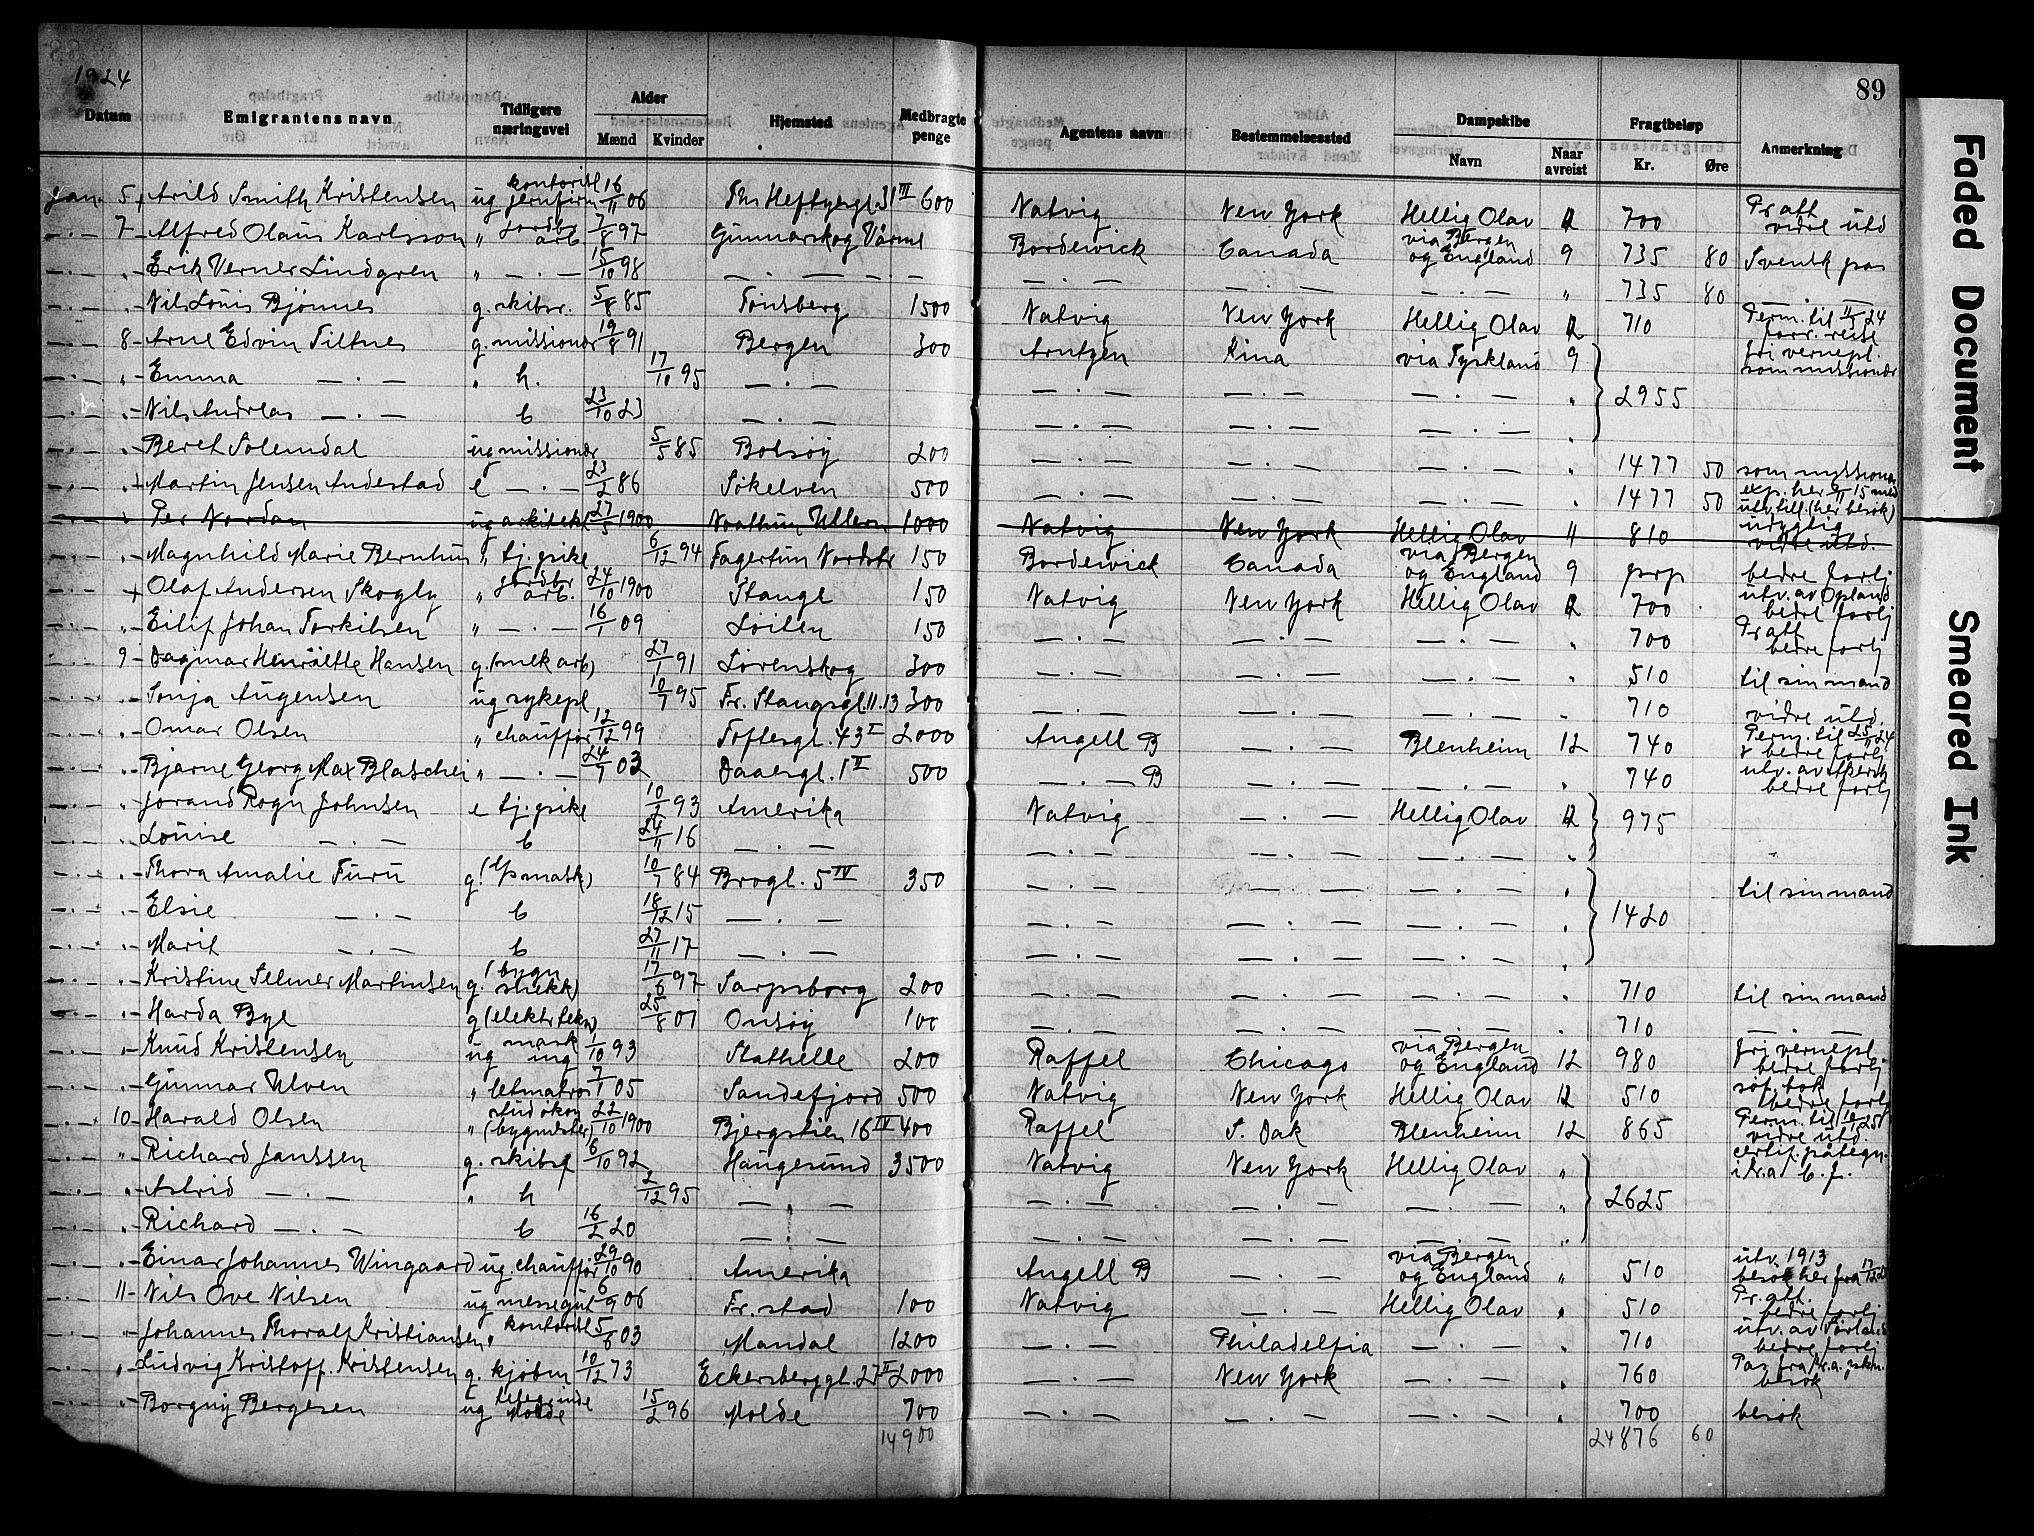 1924
89
Datum Emigrantens navn Tidligere næringsvei Alder Mænd Kvinder Hjemsted Medbragte penge Agentens navn Bestemmelsessted Dampskibe Navn Naar avreist Fragtbeløp Kr. Øre Anmerkning
Jan. 5 Arild Smith Kristensen ug kontorist jernfirm 16/11 06 Ths Heftyesgt. 31 III 600 Natvig New York Hellig Olav 12 700 Pr att vidre utd
7 Alfred Olaus Karlsson " Jordbr arb 7/8 97 Gunnarskog Värml Bordewick Canada via Bergen og England 9 735 80 Svensk pas
" Erik Verner Lindgren " — . — 15/10 98 — . — — . — — . — — . — " 735 80 — . —
" Nils Louis Bjønnes g. skibsr. 5/8 85 Tønsberg 1500 Natvig New York Hellig Olav 12 710 Perm. til 11/3 24 forr. reise
8 Arne Edvin Tiltnes g. missionær 19/8 91 Bergen 300 Arntzen Kina via Tyskland 9 fri vernepl. som missionær
" Emma — . — " h. 17/10 95 — . — — . — — . — — . — " 2955
" Nils Andreas — . — b 23/10 23 — . — — . — — . — — . — "
" Beret Solemdal ug missionær 5/5 85 Bolsøy 200 — . — — . — — . — " 1477 50 som myssionær
" Martin Jensen Andestad e — . — 23/2 86 Søkelven 500 — . — — . — — . — " 1477 50 exp. her 9/11 15 med utv. till. (her besøk)
" Per Nordan ug arkitekt 27/5 1900 Ullern 1000 Natvig New York Hellig Olav 11 810 udygtig vidre utd.
" Magnhild Marie Bernhus " tj. pike 6/12 94 Fagertun Nordstr 150 Bordewick Canada via Bergen og England 9 prp bedre forlj
" Olaf Andersen Skogly " Jordbr arb. 24/10 1900 Stange 150 Natvig New York Hellig Olav 12 700 utv. av Opland bedre forlj
" Eilif Johan Torkilsen " — . — 16/1 09 Løiten 150 — . — — . — — . — " 700 Pr att bedre forlj
9 Dagmar Henriette Hansen g. (mek arb) 27/1 91 Lørenskog 300 — . — — . — — . — " 510 til sin mand
" Sonja Augensen ug sykepl 10/7 95 Fr. Stangsgt. 11.13 300 — . — — . — — . — " 710 vidre utd.
" Omar Olsen " chauffør 12/12 99 Toftesgt. 43 I 2000 Angell B — . — Blenheim 12 740 Perm. til 25/11 24 & bedre forlj
" Bjarne Georg Max Blaschei " — . — 24/1 03 Daaesgt. 1 II 500 — . — B — . — — . — " 740 utv. av Akersh bedre forlj
" Jorand Rogn Johnsen e tj. pike 10/2 93 Amerika Natvig — . — Hellig Olav 12 975
" Louise — . — b 24/11 16 — . — — . — — . — — . — "
" Thora Amalie Furu g. (typ mask) 10/1 84 Brogt. 5 IV 350 — . — — . — — . — " til sin mand
" Elsie — . — b 18/12 15 — . — — . — — . — — . — " 1420
" Marit — . — b 27/11 17 — . — — . — — . — — . — "
" Kristine Selmer Martinsen g. (bygn snekk) 17/6 97 Sarpsborg 200 — . — — . — — . — " 710 til sin mand
" Harda Bye g (elektr tekn) 25/8 01 Onsøy 100 — . — — . — — . — " 710 — . —
" Knud Kristensen ug mask ing 1/10 93 Stathelle 200 Raffel Chicago via Bergen og England 12 980 fri vernepl bedre forlj
" Gunnar Ulven " letmatros 7/1 05 Sandefjord 500 Natvig New York Hellig Olav 12 510 søf. bok bedre forlj
10 Harald Olsen " stud økon (bygmester) 22/10 1900 Bjergstien 16 IV 400 Raffel S. Dak Blenheim 12 865 Perm. til 10/1 25 vidre utd.
" Richard Janssen g. skibsf 6/10 92 Haugesund 3500 Natvig New York Hellig Olav " certif. påtegn. i Kr.a b. f.
" Astrid — . — " h 2/12 95 — " — — . — — . — — . — " 2625
" Richard — . — b 16/2 20 — . — — . — — . — — . — "
" Einar Johannes Wingaard ug. chauffør 29/10 90 Amerika Angell B — . — via Bergen og England " 510 utv. 1913 besøk her fra 17/12 23
11 Nils Ove Nilsen ug messegut 6/9 06 Fr. stad 100 Natvig — . — Hellig Olav " 510 Pr. att. bedre forlj
" Johannes Thoralf Kristiansen " kontorist 5/6 03 Mandal 1200 — . — Philadelfia — . — " 710 utv. av Sørland bedre forlj
" Ludvig Kristoff. Kristensen g. kjøbm 10/12 73 Eckersberggt. 27 II 2000 — . — New York — . — " 760 Pas fra Kr.a besøk
" Borgny Bergesen ug Molde 15/2 96 Molde 700 — . — — . — — . — " 700 besøk
14900 24876 60
Faded Document
Smeared Ink